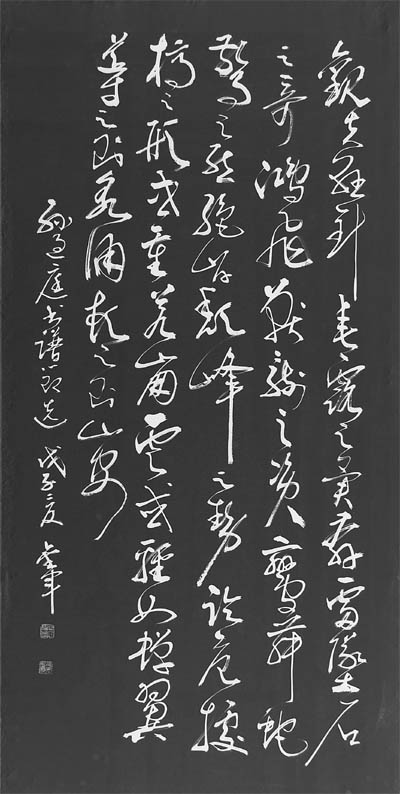 觀夫懸針垂露之異奔雷墜石
之奇鴻飛獸駭之資鸞舞蛇
驚之態絕岸頹峰之勢臨危據
槁之形或重若崩雲或輕如蟬翼
導之則泉注頓之則山安
孫過庭書譜節選 戊子夏